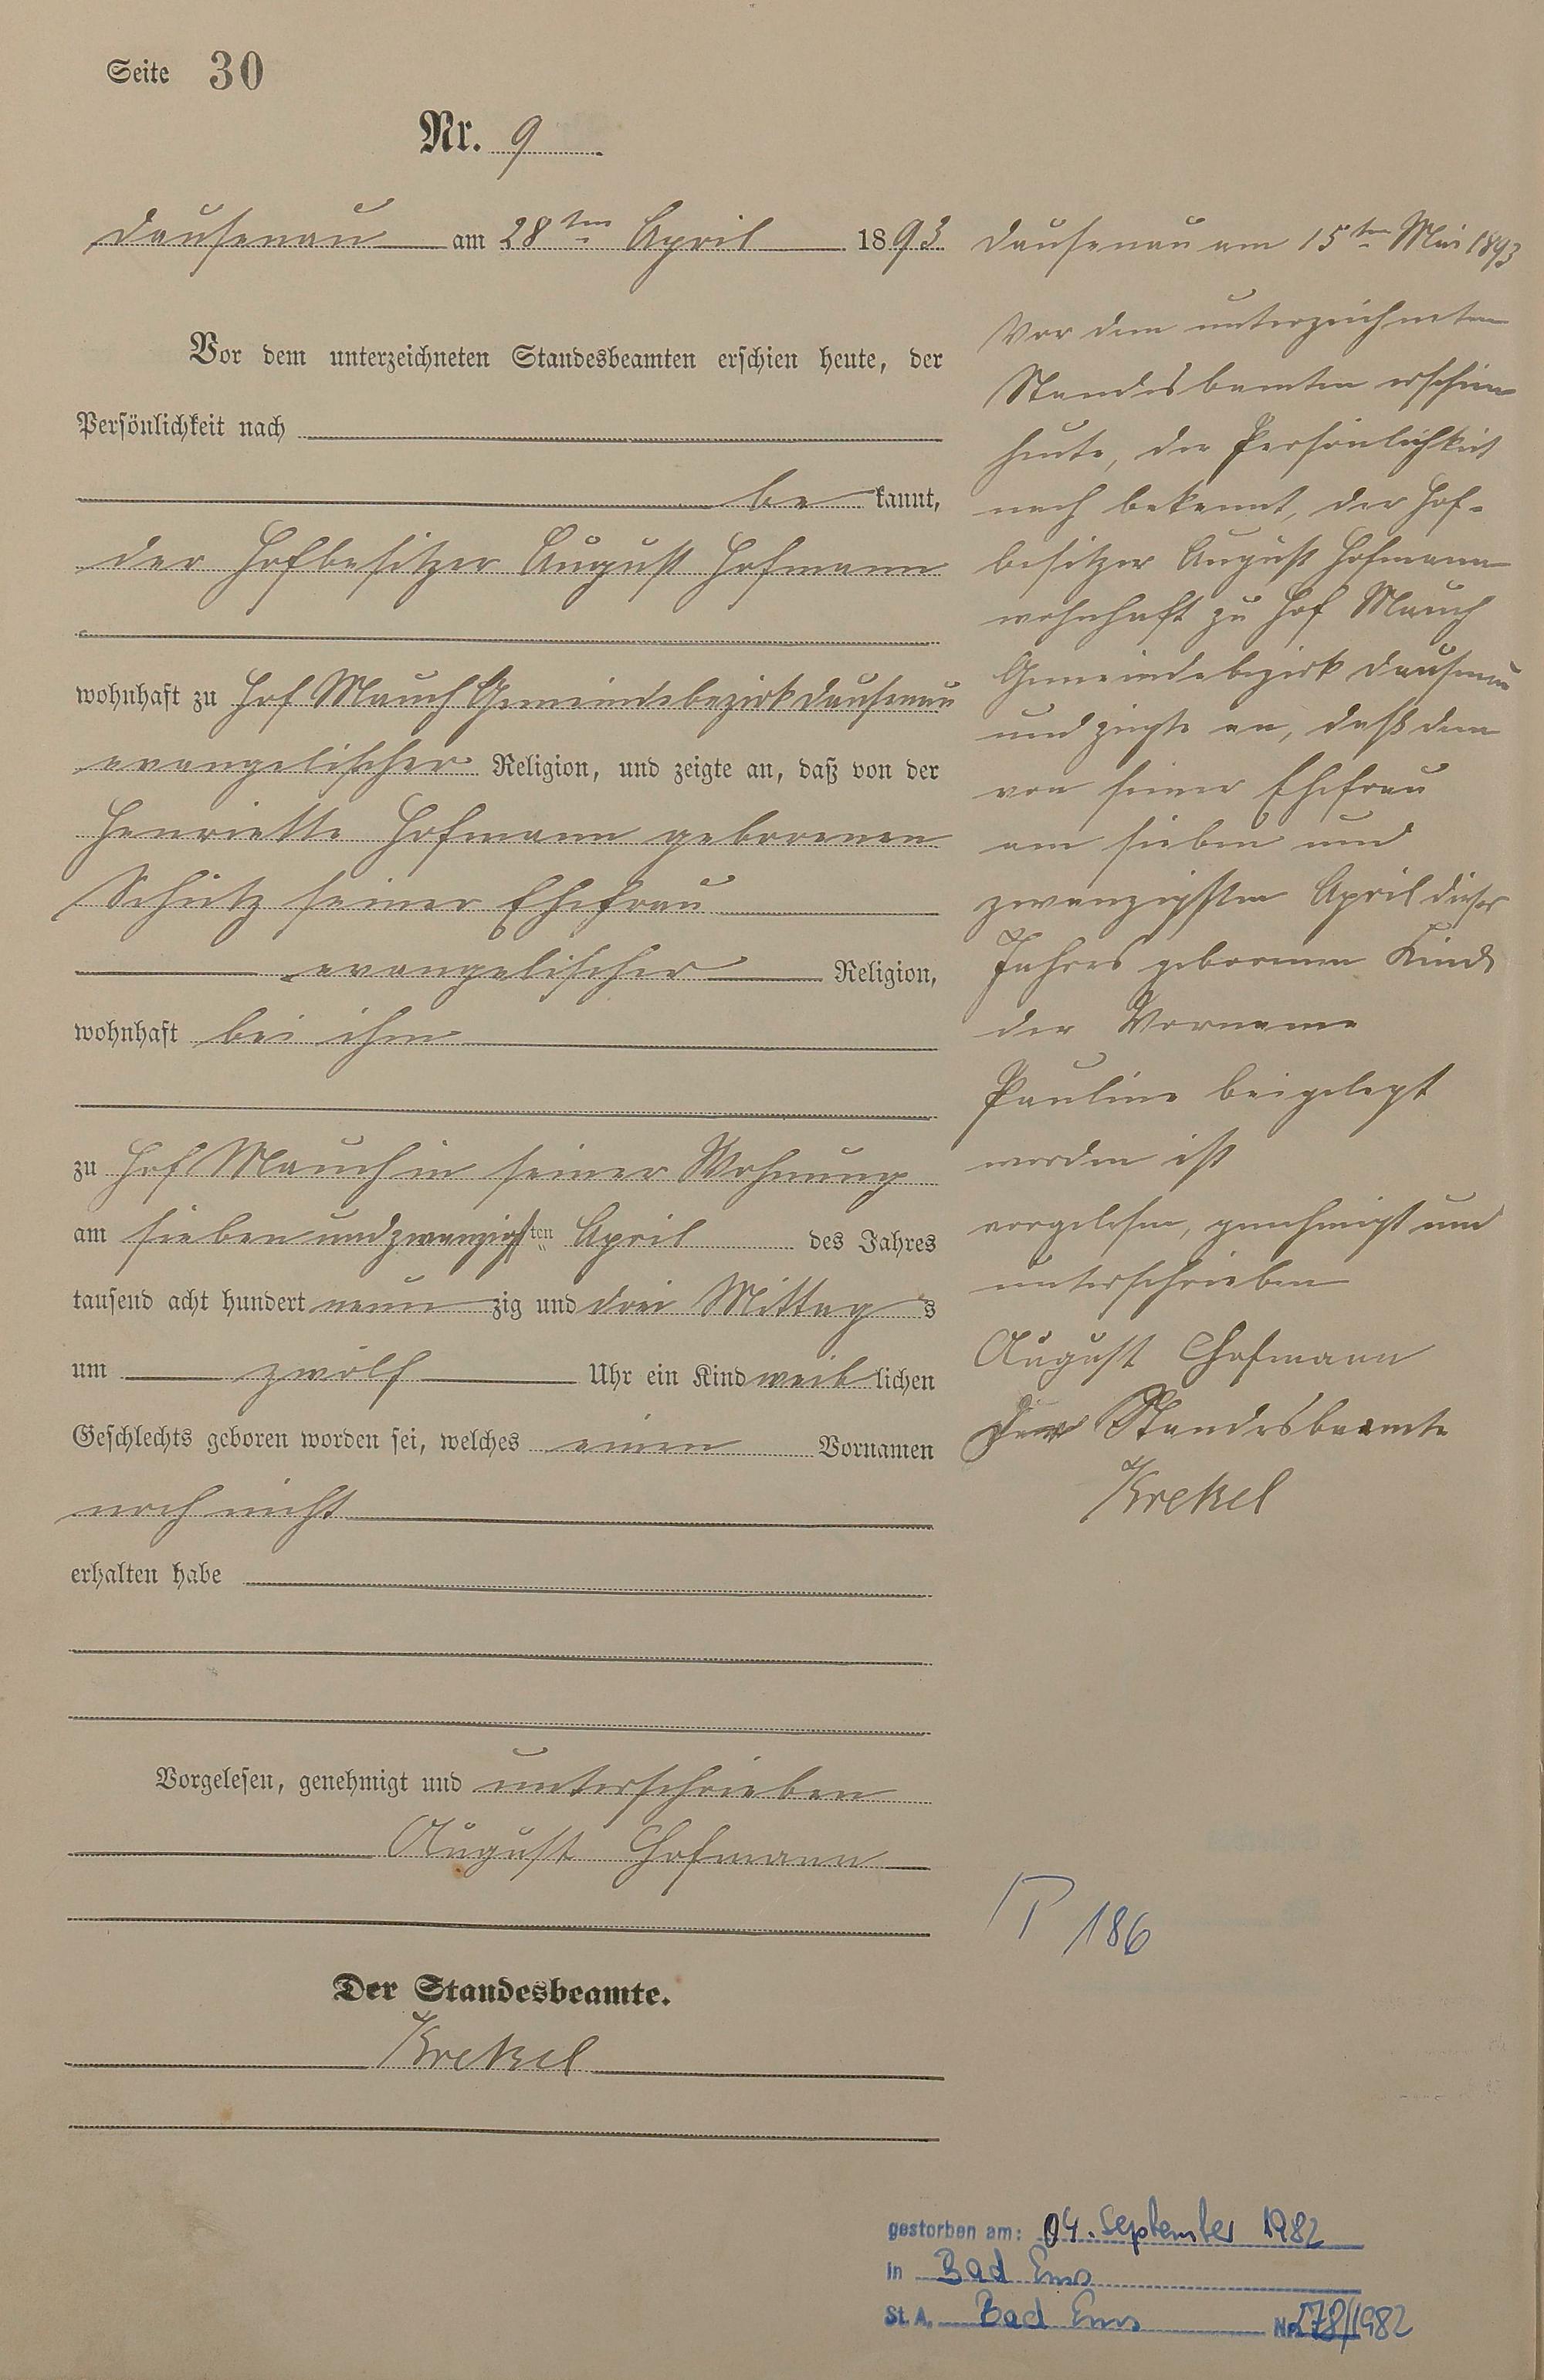 Seite 30
Nr. 9
Dausenau am 28ten April 1893
Vor dem unterzeichneten Standesbeamten erschien heute, der
Persönlichkeit nach
be kannt,
der Hofbesitzer August Hofmann
wohnhaft zu Hof Mauch Gemeindebezirk Dausenau
evangelischer Religion, und zeigte an, daß von der
Henriette Hofmann geborenen
Schütz seiner Ehefrau
evangelischer Religion,
wohnhaft bei ihm
zu Hof Mauch in seiner Wohnung
am sieben und zwanzigsten April des Jahres
tausend acht hundert neun zig und drei Mittag s
um zwölf Uhr ein Kind weib lichen
Geschlechts geboren worden sei, welches einen Vornamen
noch nicht
erhalten habe
Vorgelesen, genehmigt und unterschrieben
August Hofmann
Der Standesbeamte.
Krekel
Dausenau am 15ten Mai 1893
Vor dem unterzeichneten
Standesbeamten erschien
heute, der Persönlichkeit
nach bekannt, der Hof-
besitzer August Hofmann
wohnhaft zu Hof Mauch
Gemeindebezirk Dausenau
und zeigte an, daß dem
von seiner Ehefrau
am sieben und
zwanzigsten April dieses
Jahres geborenen Kind
der Vorname
Pauline beigelegt
worden ist
vorgelesen, genehmigt und
unterschrieben
August Hofmann
Der Standesbeamte
Krekel
P 186
gestorben am: 04. September 1982
in Bad Ems
St. A. Bad Ems Nr. 278/1982